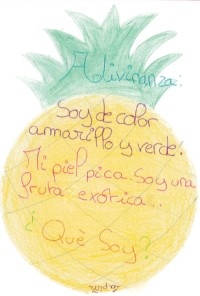 Adivinanza:
Soy de color
amarillo y verde!
Mi piel pica. Soy una
fruta exótica..
¿Què Soy?